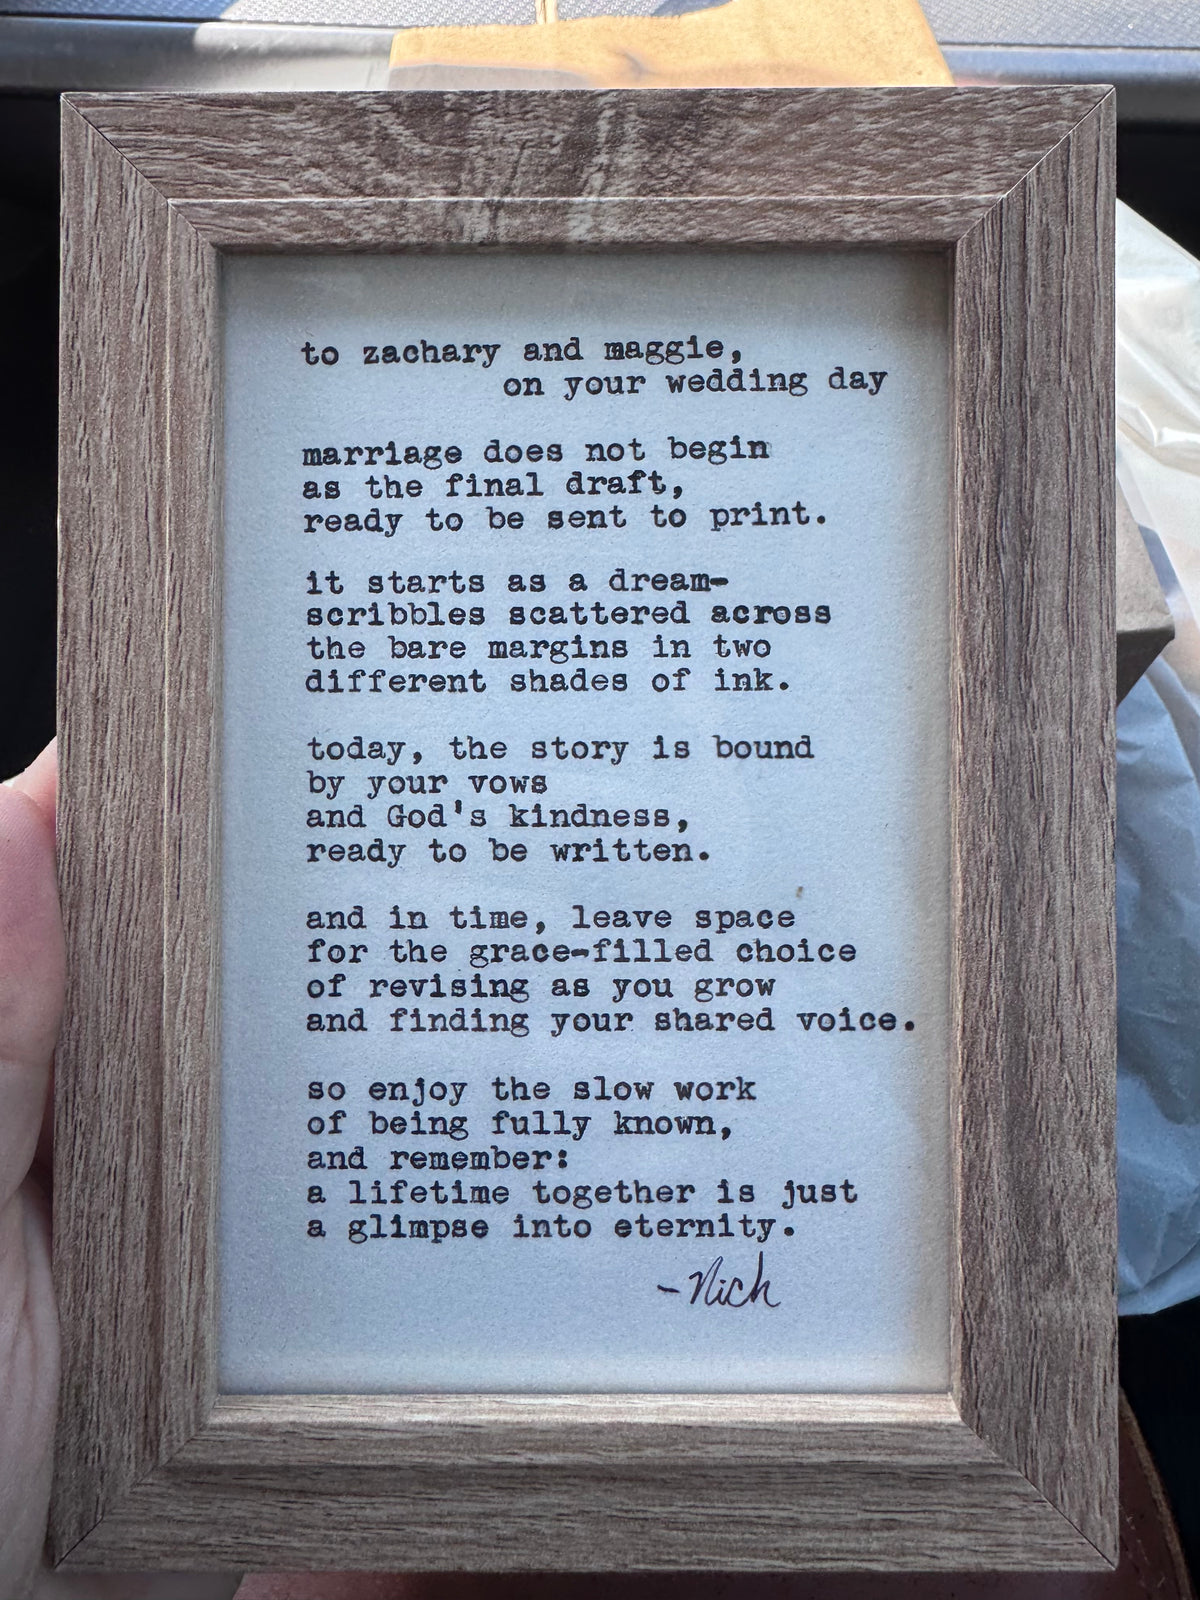 to zachary and maggie,
on your wedding day
marriage does not begin
as the final draft,
ready to be sent to print.
it starts as a dream-
scribbles scattered across
the bare margins in two
different shades of ink.
today, the story is bound
by your vows
and God's kindness,
ready to be written.
and in time, leave space
for the grace-filled choice
of revising as you grow
and finding your shared voice.
so enjoy the slow work
of being fully known,
and remember:
a lifetime together is just
a glimpse into eternity.
-Nick